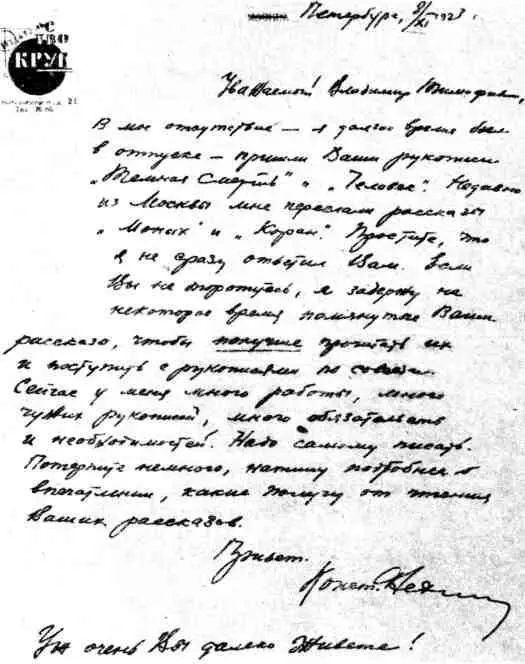 КРУГ
Петербург, 9/XI 1923.
Уважаемый Владимир
В мое отсутствие — я долгое время был
в отпуске — пришли Ваши рукописи
„Темная Смерть" и „Человек". Недавно
из Москвы мне переслали рассказы
„Монах" и „Коран". Простите, что
я не сразу ответил Вам. Если
Вы не торопитесь, я задержу на
некоторое время помянутые Ваши
рассказы, чтобы получше прочитать их
и поступить с рукописями по совести.
Сейчас у меня много работы, много
чужих рукописей, много обязательств
и необходимостей. Надо самому писать.
Потерпите немного, напишу подробнее о
впечатлении, какие получу от чтения
Ваших рассказов.
Привет.
Конст. Федин
Уж очень Вы далеко живете!